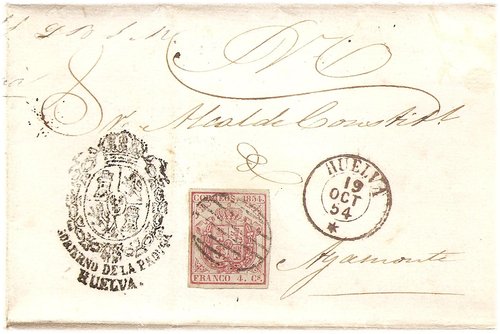 S.N.
Sr. Alcalde Constitl.
de
HUELVA
19
OCT
54
CORREOS 1854.
FRANCO 4. CS.
GOBIERNO DE LA PROVª
HUELVA.
Ayamonte